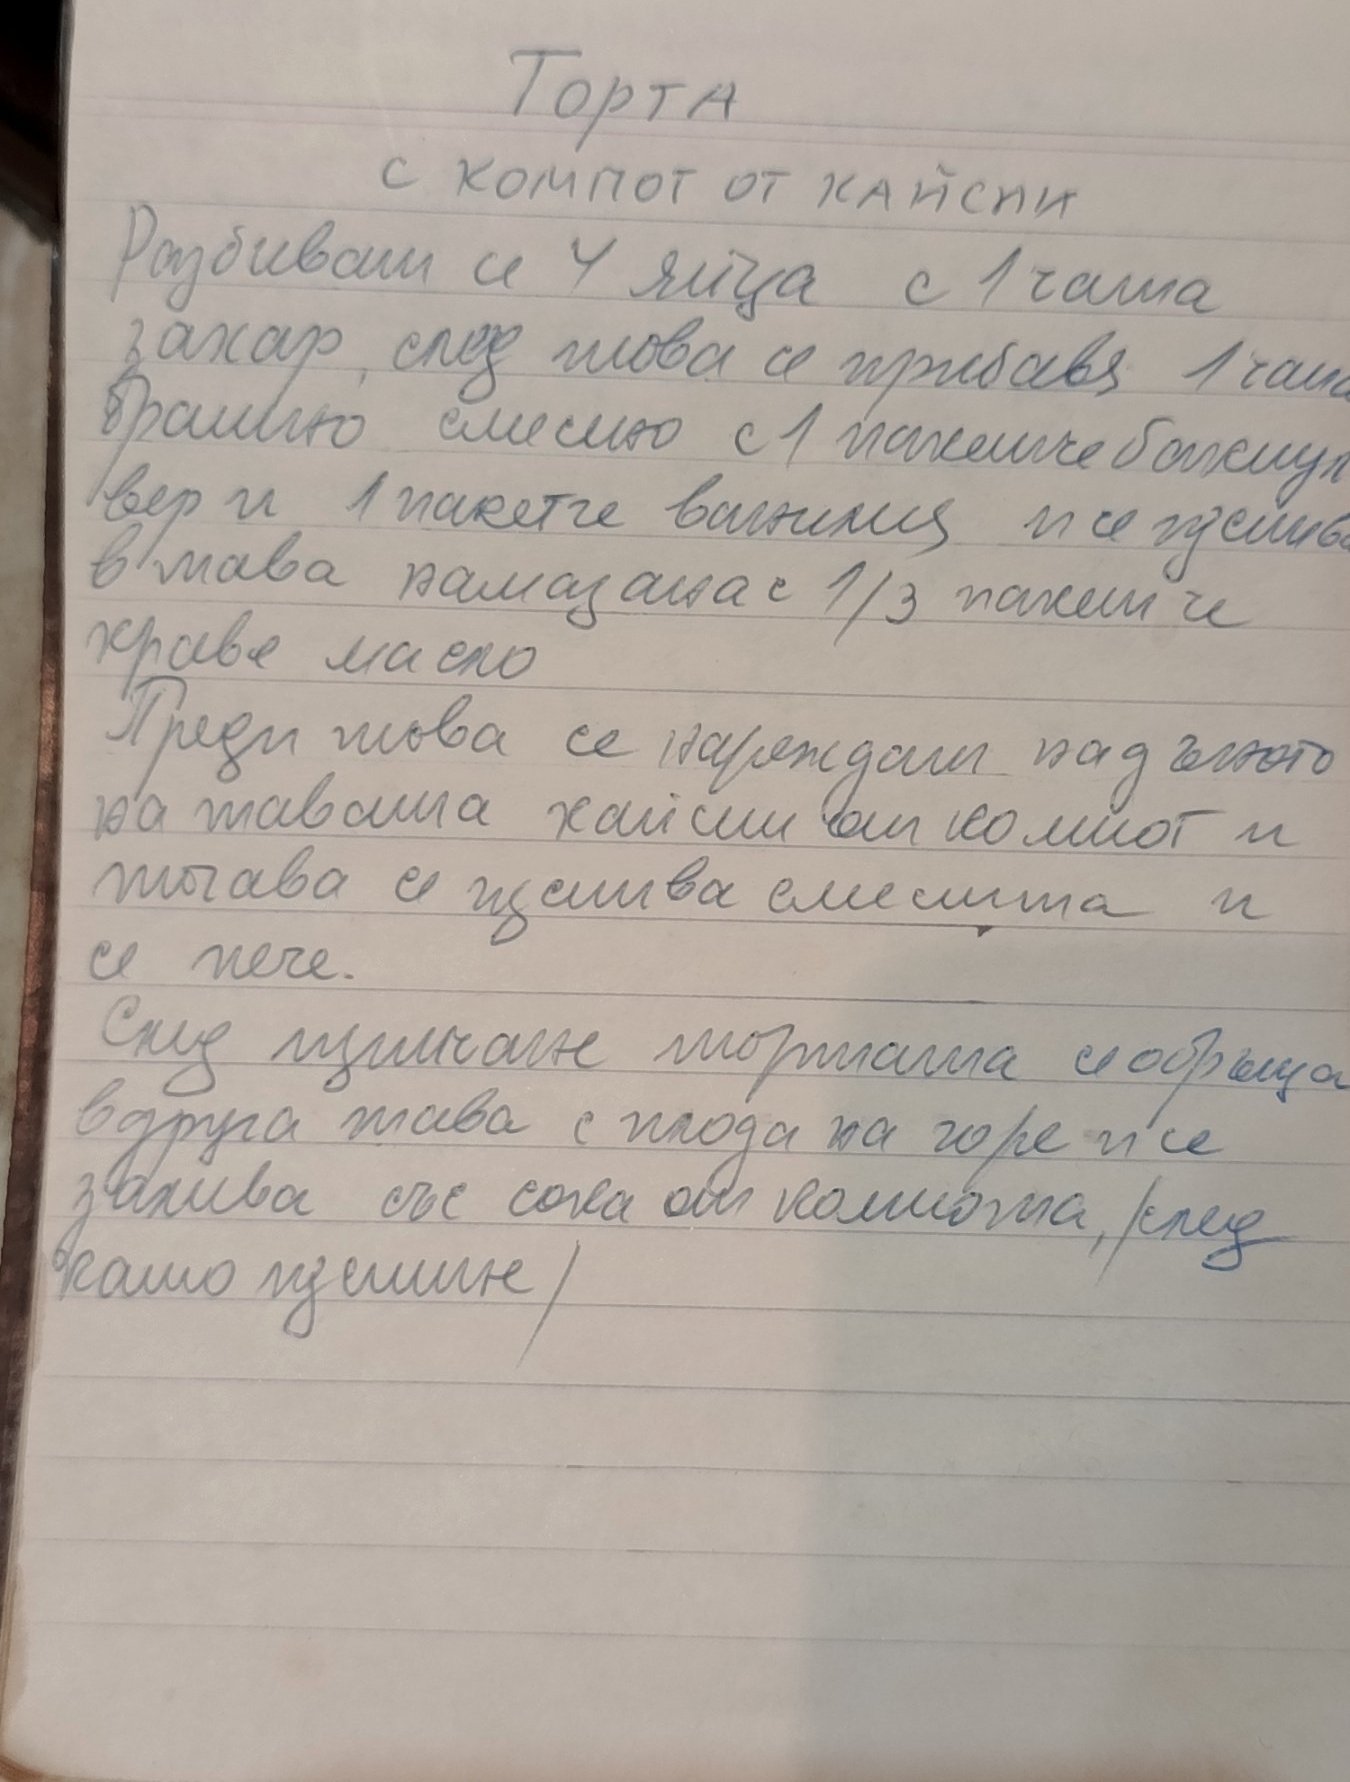 Торта
с компот от кайсии
Разбиват се 4 яйца с 1 чаша
захар, след това се прибавя 1 чаша
брашно смесено с 1 пакетче бакпул
вер и 1 пакетче ванилия и се изсипва
в тава намазана с 1/3 пакетче
краве масло
Преди това се нареждат на дъното
на тавата кайсии от компот и
тогава се изсипва сместта и
се пече.
След изпичане тортата се обръща
в друга тава с плода на горе и се
залива със сока от компота, /след
като изстине/